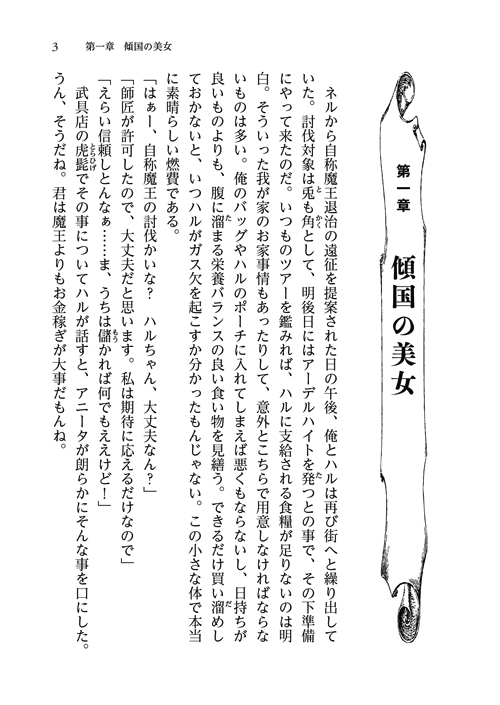 3　第一章　傾国の美女
第一章
傾国の美女
　ネルから自称魔王退治の遠征を提案された日の午後、俺とハルは再び街へと繰り出して
いた。討伐対象は兎も角として、明後日にはアーデルハイトを発つとの事で、その下準備
にやって来たのだ。いつものツアーを鑑みれば、ハルに支給される食糧が足りないのは明
白。そういった我が家のお家事情もあったりして、意外とこちらで用意しなければならな
いものは多い。俺のバッグやハルのポーチに入れてしまえば悪くもならないし、日持ちが
良いものよりも、腹に溜まる栄養バランスの良い食い物を見繕う。できるだけ買い溜めし
ておかないと、いつハルがガス欠を起こすか分かったもんじゃない。この小さな体で本当
に素晴らしい燃費である。
「はぁー、自称魔王の討伐かいな？　ハルちゃん、大丈夫なん？」
「師匠が許可したので、大丈夫だと思います。私は期待に応えるだけなので」
「えらい信頼しとんなぁ……ま、うちは儲かれば何でもええけど！」
　武具店の虎髭でその事についてハルが話すと、アニータが朗らかにそんな事を口にした。
うん、そうだね。君は魔王よりもお金稼ぎが大事だもんね。